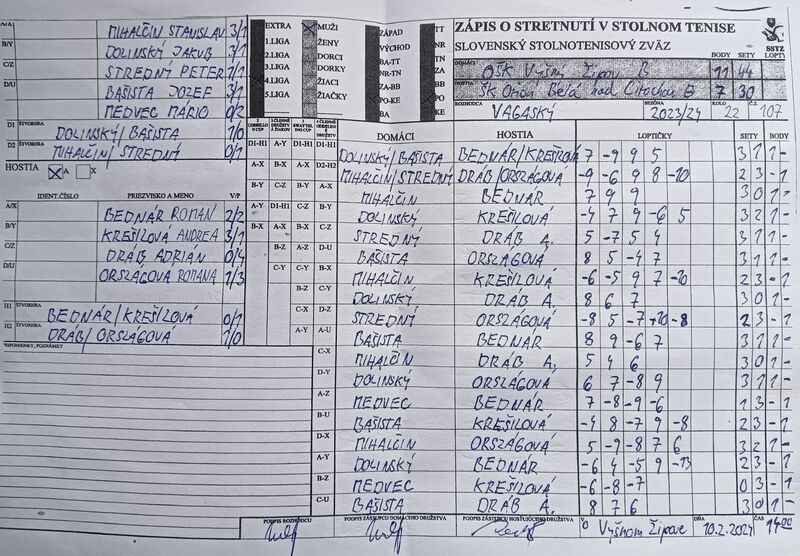 ZÁPIS O STRETNUTÍ V STOLNOM TENISE
SLOVENSKÝ STOLNOTENISOVÝ ZVÄZ
SSTZ
BODY SETY LOPTY
DOMÁCI OŠK Vyšný Žipov B 11 44
HOSTIA ŠK Ondava Belá nad Cirochou B 7 30
ROZHODCA VAGASKÝ SEZÓNA 2023/24 KOLO 22 Č. 107
EXTRA MUŽI ZÁPAD TT
1.LIGA ŽENY VÝCHOD NR
2.LIGA DORCI BA-TT TN
3.LIGA DORKY NR-TN ZA
4.LIGA ŽIACI ZA-BB BB
5.LIGA ŽIAČKY PO-KE PO
BA KE
A/X MIHALČIN STANISLAV 3/1
B/Y DOLINSKÝ JAKUB 3/1
C/Z STREDNÝ PETER 1/1
D/U BAŠISTA JOZEF 3/1
MEDVEC MÁRIO 0/2
D1 ŠTVORHRA DOLINSKÝ/BAŠISTA 1/0
D2 ŠTVORHRA MIHALČIN/STREDNÝ 0/1
HOSTIA A X
IDENT.ČÍSLO PRIEZVISKO A MENO V/P
A/X BEDNÁR ROMAN 2/2
B/Y KREŠILOVÁ ANDREA 3/1
C/Z DRÁB ADRIAN 0/4
D/U ORSZÁGOVÁ ROMANA 1/3
H1 ŠTVORHRA BEDNÁR/KREŠILOVÁ 0/1
H2 ŠTVORHRA DRÁB/ORSZÁGOVÁ 1/0
PRIPOMIENKY, POZNÁMKY
DOMÁCI HOSTIA LOPTIČKY SETY BODY
DOLINSKÝ/BAŠISTA BEDNÁR/KREŠILOVÁ 7 -9 9 5 3 1 1 -
MIHALČIN/STREDNÝ DRÁB/ORSZÁGOVÁ -9 -6 9 8 -10 2 3 - 1
MIHALČIN BEDNÁR 7 9 9 3 0 1 -
DOLINSKÝ KREŠILOVÁ -4 7 9 -6 5 3 2 1 -
STREDNÝ DRÁB A. 5 -7 5 4 3 1 1 -
BAŠISTA ORSZÁGOVÁ 8 5 -4 7 3 1 1 -
MIHALČIN KREŠILOVÁ -6 -5 9 7 -10 2 3 - 1
DOLINSKÝ DRÁB A. 8 6 7 3 0 1 -
STREDNÝ ORSZÁGOVÁ -8 5 -7 10 -8 2 3 - 1
BAŠISTA BEDNÁR 8 9 -6 7 3 1 1 -
MIHALČIN DRÁB A. 5 4 6 3 0 1 -
DOLINSKÝ ORSZÁGOVÁ 6 7 -8 9 3 1 1 -
MEDVEC BEDNÁR 7 -8 -9 -6 1 3 - 1
BAŠISTA KREŠILOVÁ -4 8 -7 9 -8 2 3 - 1
MIHALČIN ORSZÁGOVÁ 5 -9 -8 7 6 3 2 1 -
DOLINSKÝ BEDNÁR -6 4 -5 9 -13 2 3 - 1
MEDVEC KREŠILOVÁ -6 -8 -7 0 3 - 1
BAŠISTA DRÁB A. 8 7 6 3 0 1 -
PODPIS ROZHODCU PODPIS ZÁSTUPCU DOMÁCEHO DRUŽSTVA PODPIS ZÁSTUPCU HOSŤUJÚCEHO DRUŽSTVA V Vyšnom Žipove DŇA 10.2.2024 ČAS 14:00